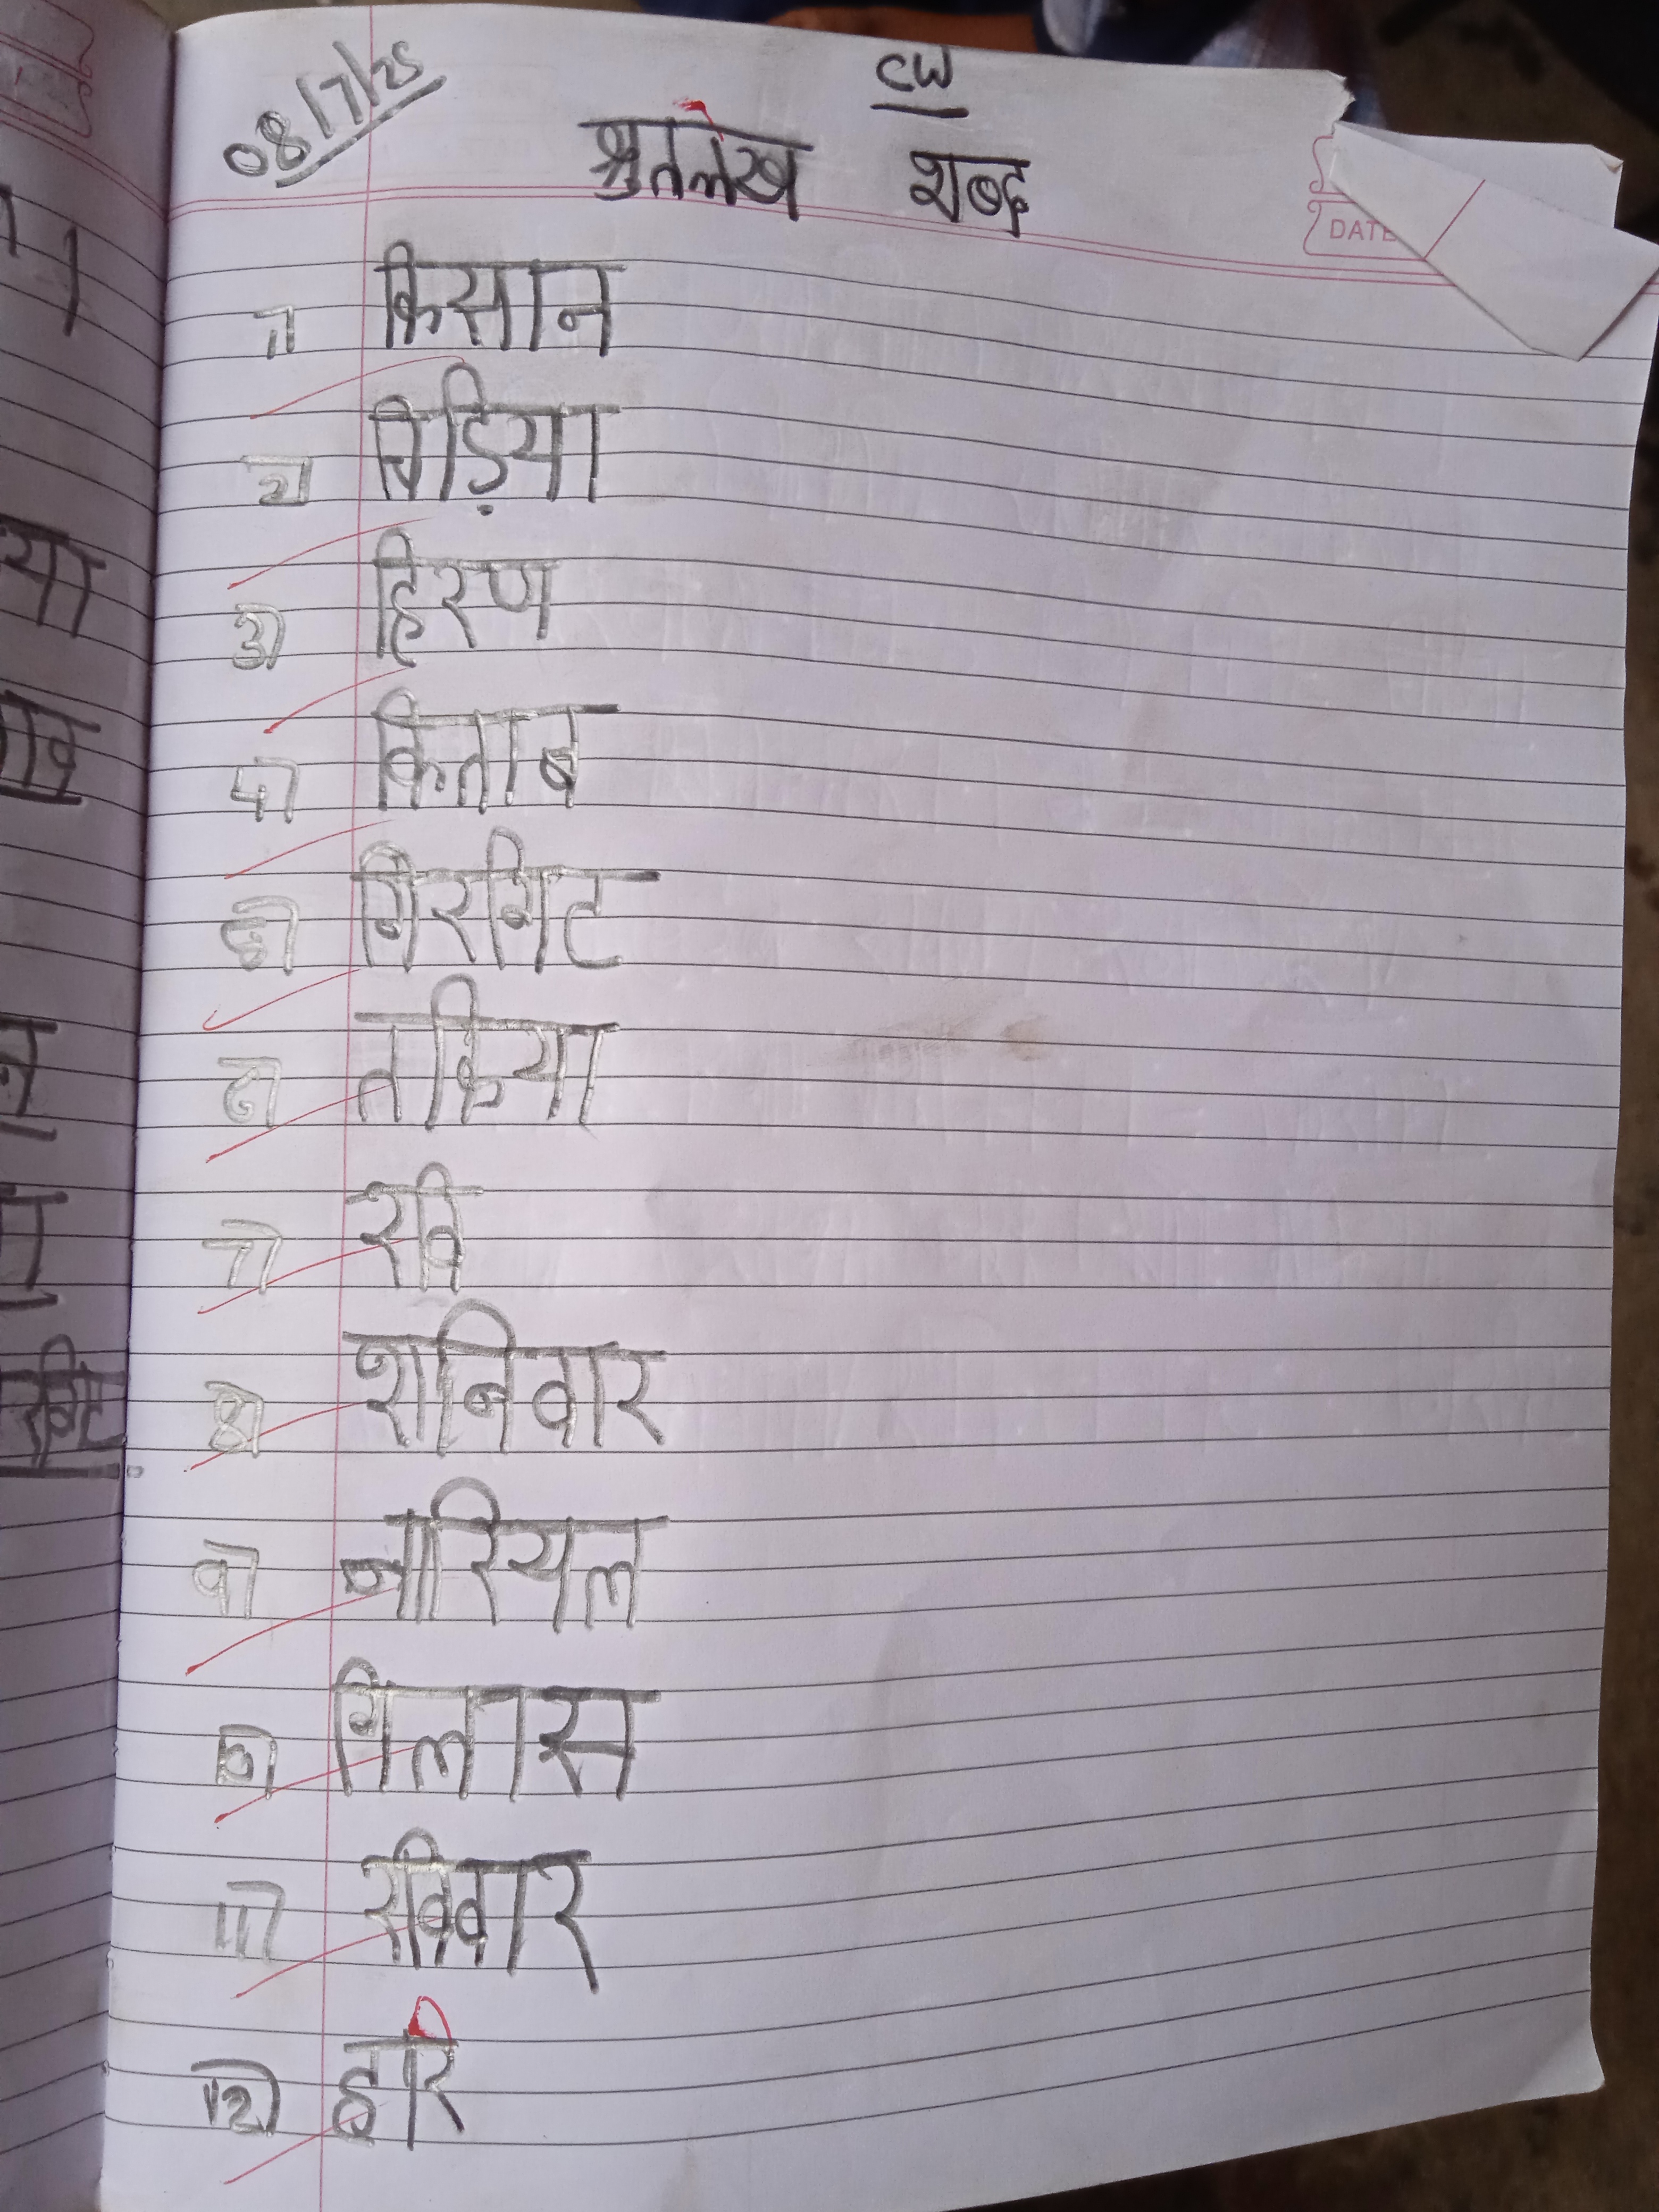 08/7/25
CW
श्रुतलेख शब्द
1) किसान
2) चिड़िया
3) हिरण
4) किताब
5) गिरगिट
6) तकिया
7) रवि
8) शनिवार
9) नारियल
10) गिलास
11) रविवार
12) हरि
DATE